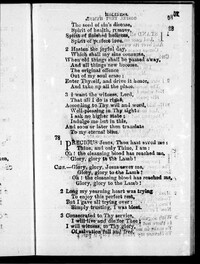 HOLINESS.
The seed of sin's disease,
Spirit of health, remove,
Spirit of finished holiness,
Spirit of perfect love.
2 Hasten the joyful day,
Which shall my sins consume,
When old things shall be passed away,
And all things new become.
The original offence
Out of my soul erase;
Enter Thyself, and drive it hence,
And take up all the place.
3 I want the witness, Lord,
That all I do is right,
According to Thy will and word,
Well-pleasing in Thy sight:
I ask no higher state;
Indulge me but in this,
And soon or later then translate
To my eternal bliss.
78
PRECIOUS Jesus, Thou hast saved me;
Thine, and only Thine, I am:
Oh! the cleansing blood has reached me,
Glory, glory to the Lamb!
CHO.—Glory, glory, Jesus saves me,
Glory, glory to the Lamb!
Oh! the cleansing blood has reached me,
Glory, glory to the Lamb!
2 Long my yearning heart was trying
To enjoy this perfect rest,
But I gave all trying over;
Simply trusting, I was blest.
3 Consecrated to Thy service,
I will live and die for Thee;
I will witness, to Thy glory,
Of salvation full and free.